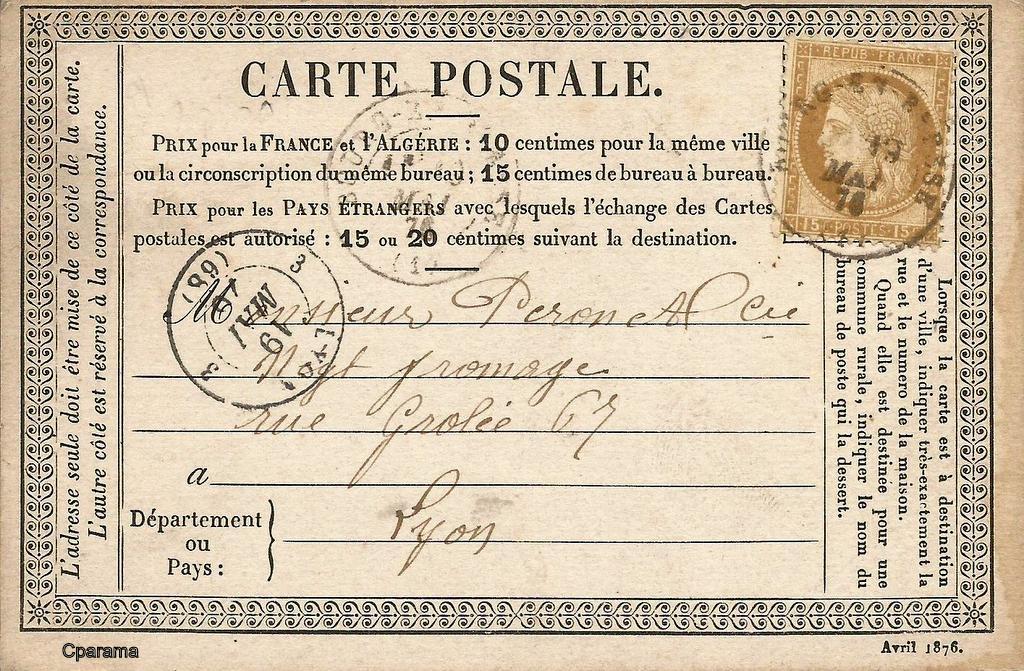 CARTE POSTALE.
PRIX pour la FRANCE et l'ALGÉRIE : 10 centimes pour la même ville
ou la circonscription du même bureau ; 15 centimes de bureau à bureau.
PRIX pour les PAYS ÉTRANGERS avec lesquels l'échange des Cartes
postales est autorisé : 15 ou 20 centimes suivant la destination.
REPUB. FRANC.
15 POSTES 15
13
MAI
76
MAI
(89)
3
19
MAI
3
LYON
Monsieur Peron & Cie
Ngt fromage
rue Grolée 67
a
Lyon
Département
ou
Pays :
L'adresse seule doit être mise de ce côté de la carte.
L'autre côté est réservé à la correspondance.
Lorsque la carte est à destination
d'une ville, indiquer très-exactement la
rue et le numero de la maison.
Quand elle est destinée pour une
commune rurale, indiquer le nom du
bureau de poste qui la dessert.
Cparama
Avril 1876.